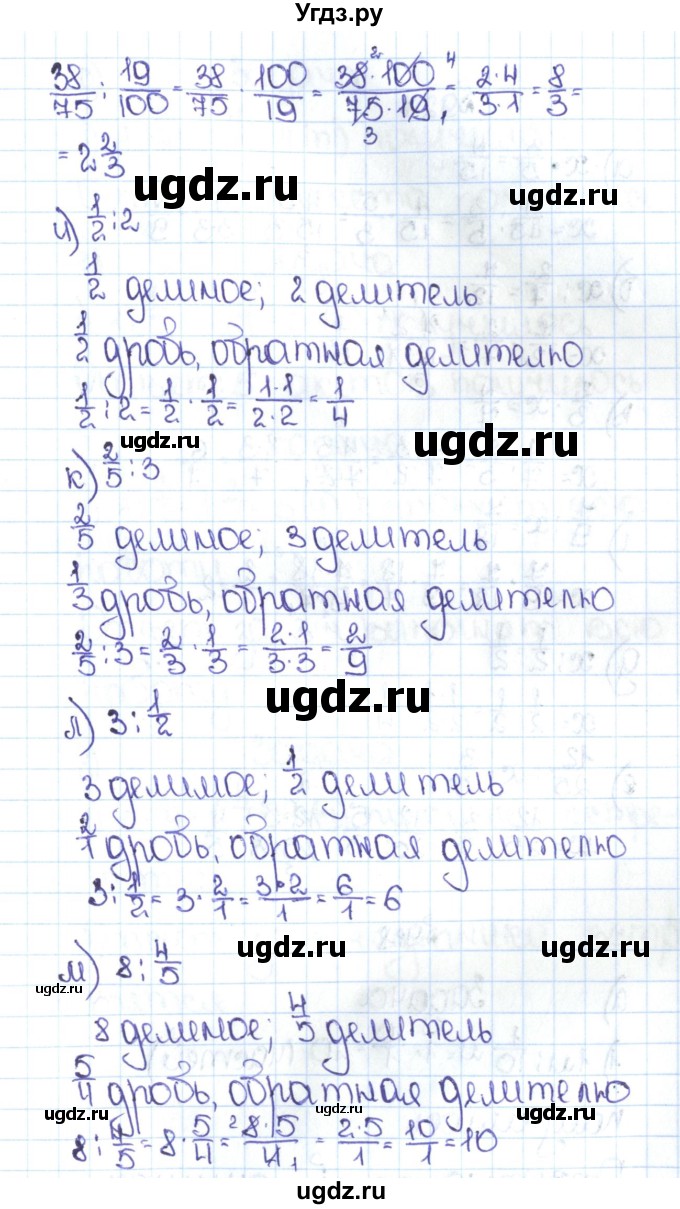 Угдз.ру
38/75 : 19/100 = 38/75 · 100/19 = 38·100/75·19 = 2·4/3·1 = 8/3 =
= 2 2/3
ugdz.ru
и) 1/2 : 2
1/2 делимое; 2 делитель
ugdz.ru
1/2 дробь, обратная делителю
1/2 : 2 = 1/2 · 1/2 = 1·1/2·2 = 1/4
ugdz.ru
ugdz.ru
к) 2/5 : 3
2/5 делимое; 3 делитель
ugdz.ru
1/3 дробь, обратная делителю
2/5 : 3 = 2/3 · 1/3 = 2·1/3·3 = 2/9
ugdz.ru
л) 3 : 1/2
3 делимое; 1/2 делитель
ugdz.ru
2/1 дробь, обратная делителю
3 : 1/2 = 3 · 2/1 = 3·2/1 = 6/1 = 6
ugdz.ru
ugdz.ru
м) 8 : 4/5
ugdz.ru
8 делимое; 4/5 делитель
5/4 дробь, обратная делителю
ugdz.ru
ugdz.ru
8 : 4/5 = 8 · 5/4 = 8·5/4 = 2·5/1 = 10/1 = 10
ugdz.ru